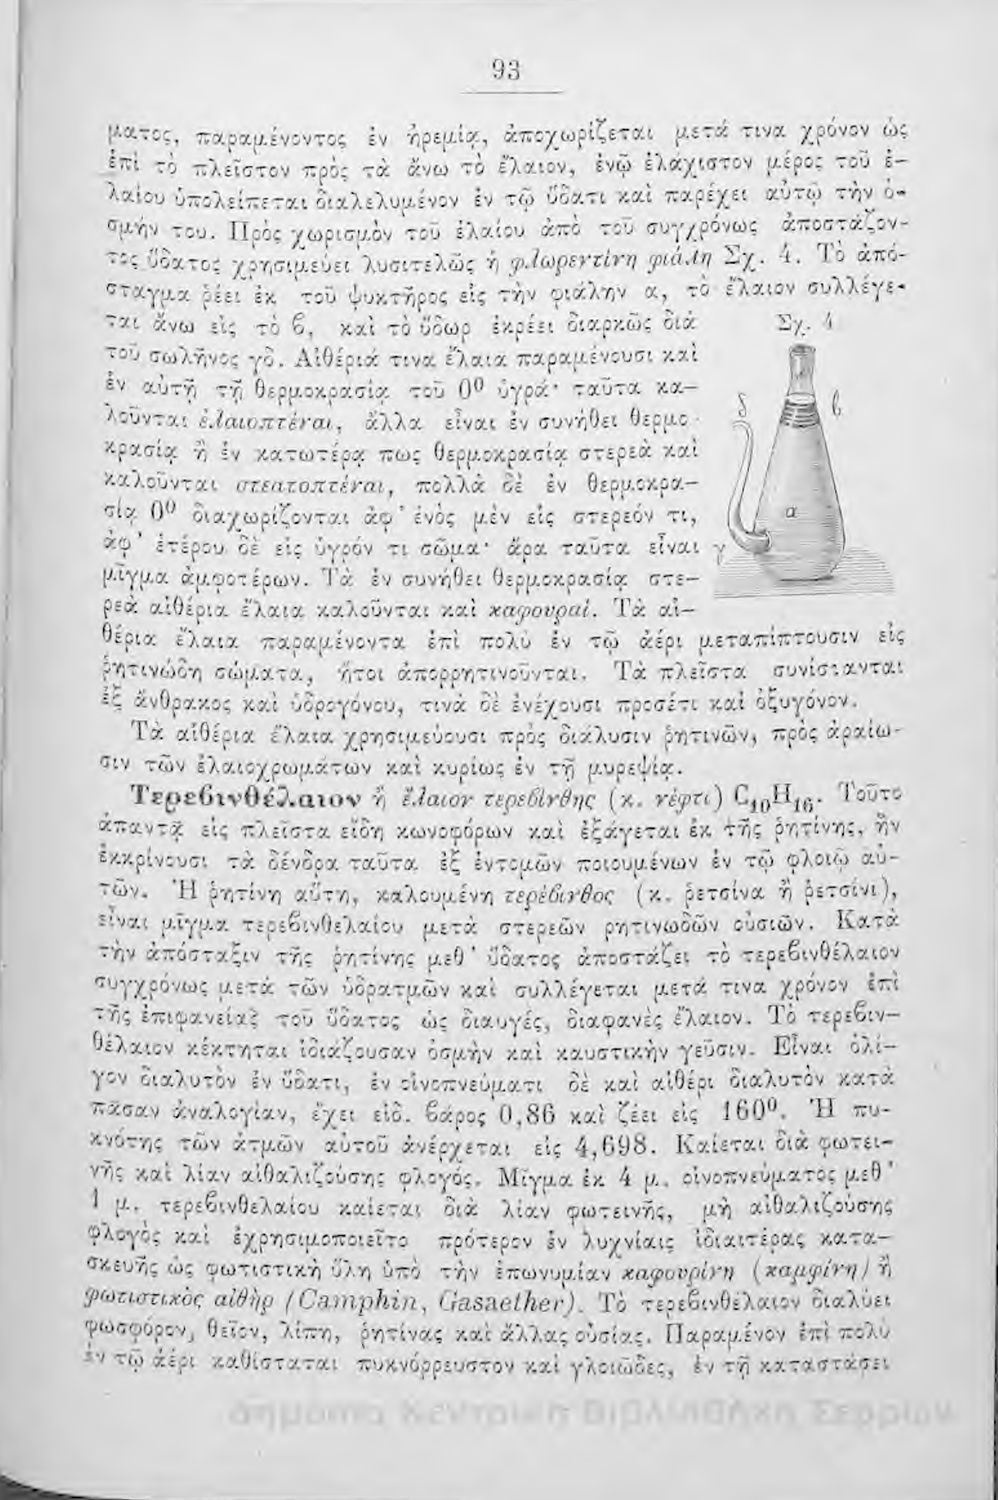 93
ματος, παραμένοντος ἐν ἠρεμίᾳ, ἀποχωρίζεται μετά τινα χρόνον ὡς
ἐπὶ τὸ πλεῖστον πρὸς τὰ ἄνω τὸ ἔλαιον, ἐνῷ ἐλάχιστον μέρος τοῦ ἐ-
λαίου ὑπολείπεται διαλελυμένον ἐν τῷ ὕδατι καὶ παρέχει αὐτῷ τὴν ὀ-
σμήν του. Πρὸς χωρισμὸν τοῦ ἐλαίου ἀπὸ τοῦ συγχρόνως ἀποστάζον-
τος ὕδατος χρησιμεύει λυσιτελῶς ἡ φλωρεντίνη φιάλη Σχ. 4. Τὸ ἀπό-
σταγμα ῥέει ἐκ τοῦ ψυκτῆρος εἰς τὴν φιάλην α, τὸ ἔλαιον συλλέγε-
ται ἄνω εἰς τὸ ϐ, καὶ τὸ ὕδωρ ἐκρέει διαρκῶς διὰ
τοῦ σωλῆνος γδ. Αἰθέριά τινα ἔλαια παραμένουσι καὶ
ἐν αὐτῇ τῇ θερμοκρασίᾳ τοῦ 0⁰ ὑγρά· ταῦτα κα-
λοῦνται ἐλαιοπτέναι, ἄλλα εἶναι ἐν συνήθει θερμο-
κρασίᾳ ἢ ἐν κατωτέρᾳ πως θερμοκρασίᾳ στερεὰ καὶ
καλοῦνται στεατοπτέναι, πολλὰ δὲ ἐν θερμοκρα-
σίᾳ 0⁰ διαχωρίζονται ἀφ' ἑνὸς μὲν εἰς στερεόν τι,
ἀφ' ἑτέρου δὲ εἰς ὑγρόν τι σῶμα· ἄρα ταῦτα εἶναι
μῖγμα ἀμφοτέρων. Τὰ ἐν συνήθει θερμοκρασίᾳ στε-
ρεὰ αἰθέρια ἔλαια καλοῦνται καὶ καφουραί. Τὰ αἰ-
Σχ. 4
δ ϐ
α
γ
θέρια ἔλαια παραμένοντα ἐπὶ πολὺ ἐν τῷ ἀέρι μεταπίπτουσιν εἰς
ῥητινώδη σώματα, ἤτοι ἀπορρητινοῦνται. Τὰ πλεῖστα συνίστανται
ἐξ ἄνθρακος καὶ ὑδρογόνου, τινὰ δὲ ἐνέχουσι προσέτι καὶ ὀξυγόνον.
Τὰ αἰθέρια ἔλαια χρησιμεύουσι πρὸς διάλυσιν ῥητινῶν, πρὸς ἀραίω-
σιν τῶν ἐλαιοχρωμάτων καὶ κυρίως ἐν τῇ μυρεψίᾳ.
Τερεϐινθέλαιον ἢ ἔλαιον τερεϐίνθης (κ. νέφτι) C₁₀H₁₆. Τοῦτο
ἀπαντᾷ εἰς πλεῖστα εἴδη κωνοφόρων καὶ ἐξάγεται ἐκ τῆς ῥητίνης, ἣν
ἐκκρίνουσι τὰ δένδρα ταῦτα ἐξ ἐντομῶν ποιουμένων ἐν τῷ φλοιῷ αὐ-
τῶν. Ἡ ῥητίνη αὕτη, καλουμένη τερέϐινθος (κ. ῥετσίνα ἢ ῥετσίνι),
εἶναι μῖγμα τερεϐινθελαίου μετὰ στερεῶν ρητινωδῶν οὐσιῶν. Κατὰ
τὴν ἀπόσταξιν τῆς ῥητίνης μεθ' ὕδατος ἀποστάζει τὸ τερεϐινθέλαιον
συγχρόνως μετὰ τῶν ὑδρατμῶν καὶ συλλέγεται μετά τινα χρόνον ἐπὶ
τῆς ἐπιφανείας τοῦ ὕδατος ὡς διαυγές, διαφανὲς ἔλαιον. Τὸ τερεϐιν-
θέλαιον κέκτηται ἰδιάζουσαν ὀσμὴν καὶ καυστικὴν γεῦσιν. Εἶναι ὀλί-
γον διαλυτὸν ἐν ὕδατι, ἐν οἰνοπνεύματι δὲ καὶ αἰθέρι διαλυτὸν κατὰ
πᾶσαν ἀναλογίαν, ἔχει εἰδ. ϐάρος 0,86 καὶ ζέει εἰς 160⁰. Ἡ πυ-
κνότης τῶν ἀτμῶν αὐτοῦ ἀνέρχεται εἰς 4,698. Καίεται διὰ φωτει-
νῆς καὶ λίαν αἰθαλιζούσης φλογός. Μῖγμα ἐκ 4 μ. οἰνοπνεύματος μεθ'
1 μ. τερεϐινθελαίου καίεται διὰ λίαν φωτεινῆς, μὴ αἰθαλιζούσης
φλογὸς καὶ ἐχρησιμοποιεῖτο πρότερον ἐν λυχνίαις ἰδιαιτέρας κατα-
σκευῆς ὡς φωτιστικὴ ὕλη ὑπὸ τὴν ἐπωνυμίαν καφουρίνη (καμφίνη) ἢ
φωτιστικὸς αἰθὴρ (Camphin, Gasaether). Τὸ τερεϐινθέλαιον διαλύει
φωσφόρον, θεῖον, λίπη, ῥητίνας καὶ ἄλλας οὐσίας. Παραμένον ἐπὶ πολὺ
ἐν τῷ ἀέρι καθίσταται πυκνόρρευστον καὶ γλοιῶδες, ἐν τῇ καταστάσει
Δημόσια Κεντρική Βιβλιοθήκη Σερρών